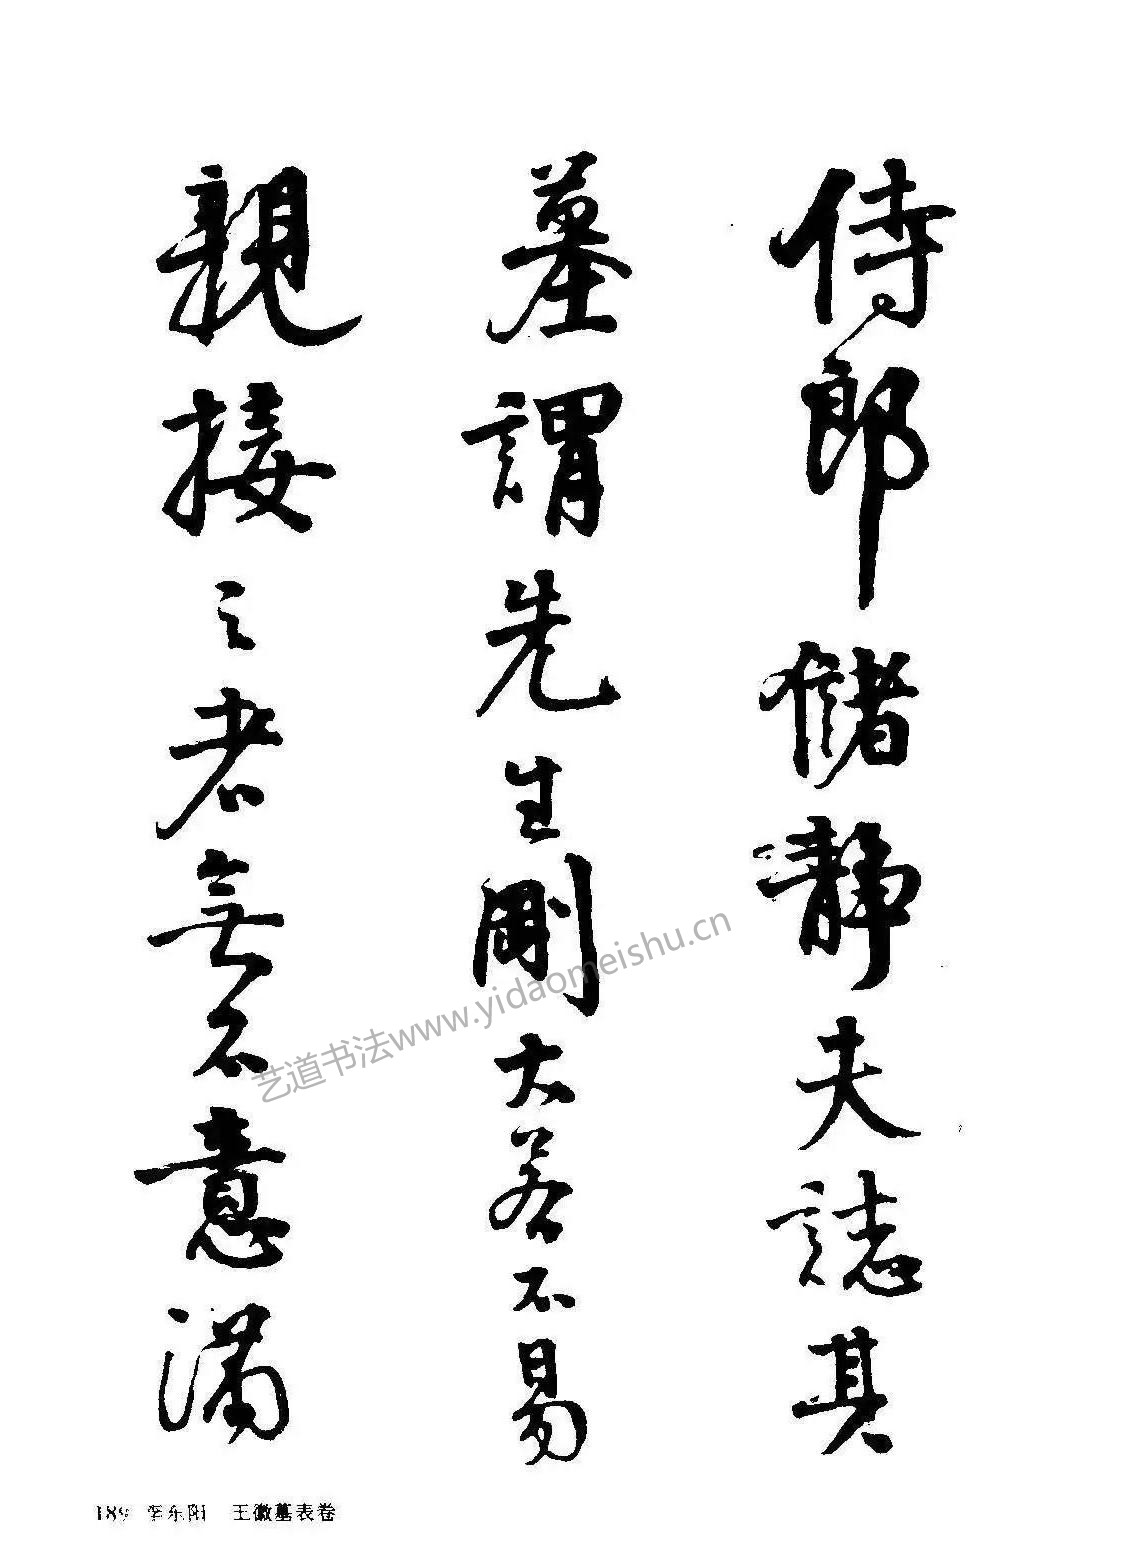 侍郎儲靜夫誌其
墓謂先生剛大若不易
親接之者無不意满
艺道书法www.yidaomeishu.cn
189 李东阳 王徽墓表卷